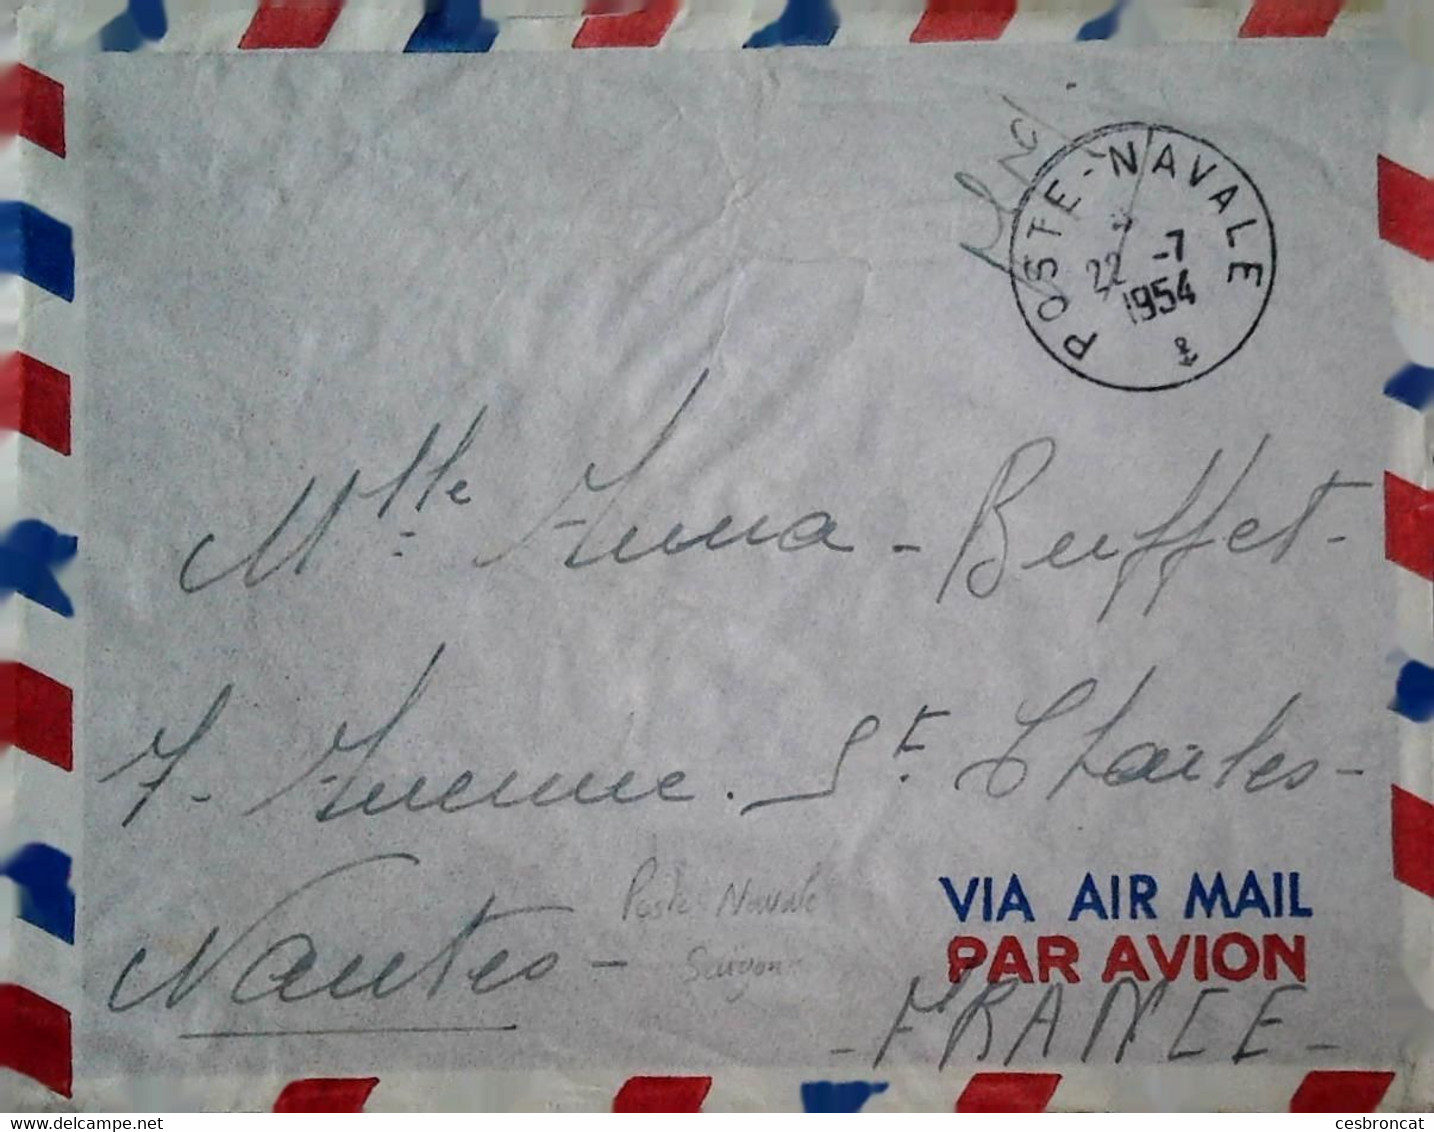 POSTE-NAVALE
22 -7
1954
Mlle Anna - Buffet -
7. Avenue. St Charles -
Nantes -
Poste Navale
Saigon
VIA AIR MAIL
PAR AVION
- FRANCE -
www.delcampe.net
cesbroncat